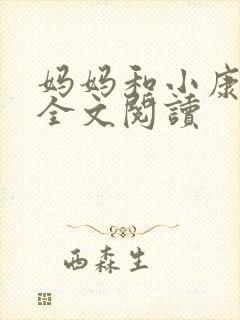 妈妈和小康
全文閱讀
西森生